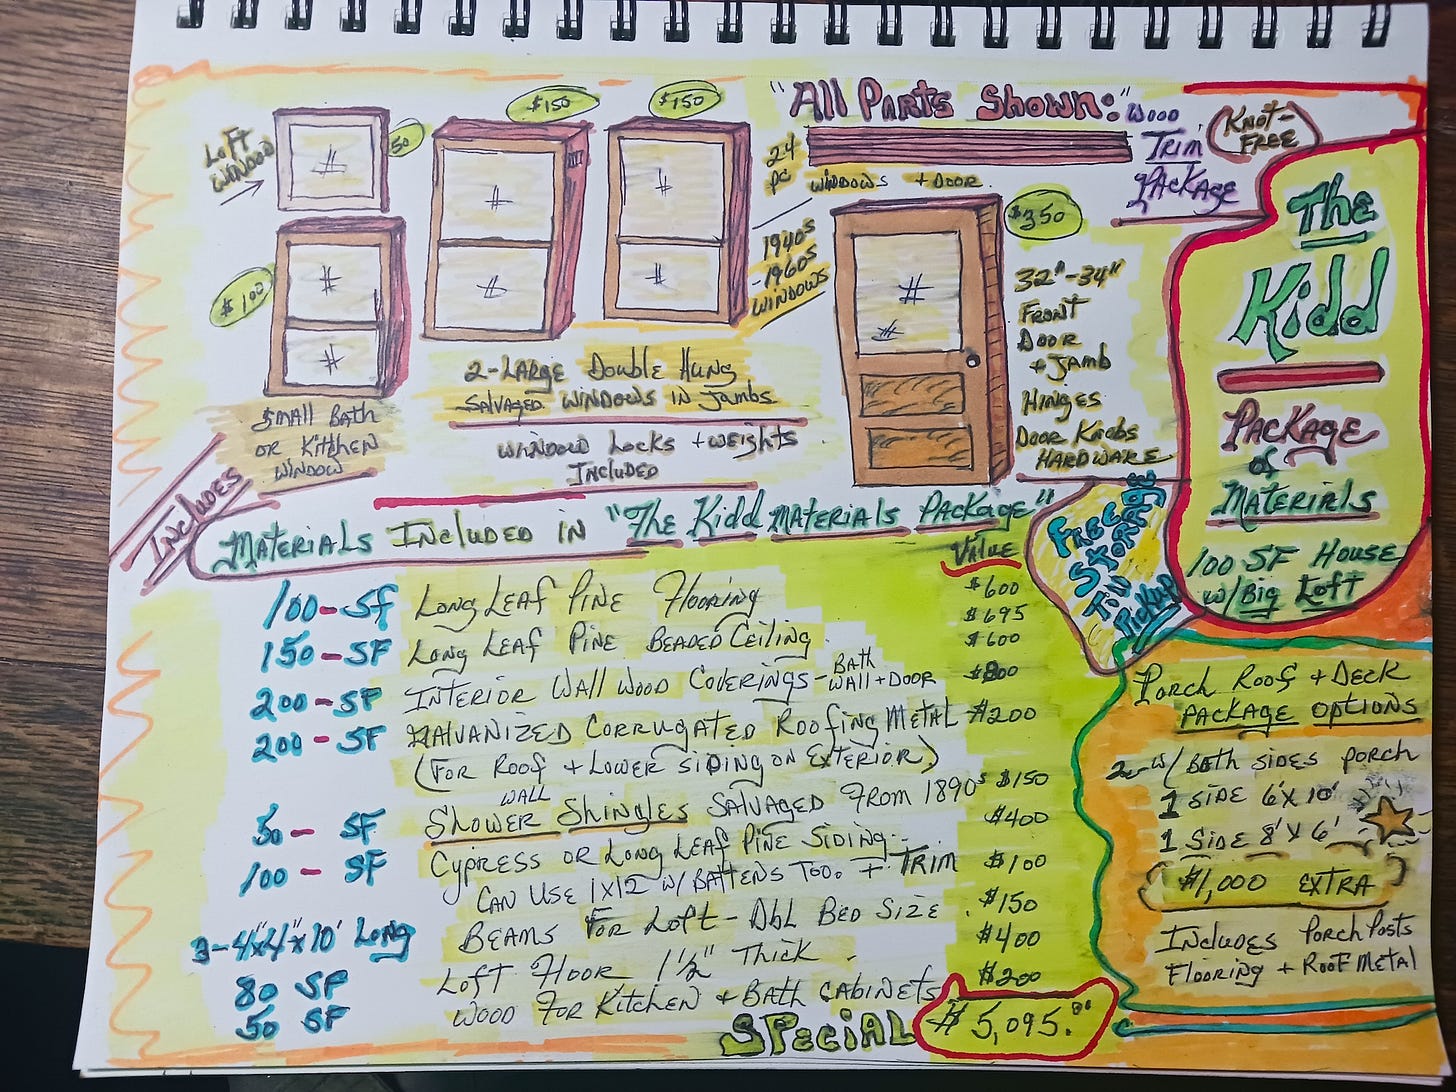 "All Parts Shown:"
Wood
Trim
Package
Knot-
Free
24
pc
windows + Door
Loft
Window
50
$150
$150
$100
$350
1940s
-1960s
Windows
32"-34"
Front
Door
+ Jamb
Hinges
Door Knobs
Hardware
2-Large Double Hung
Salvaged windows in Jambs
Window Locks + weights
Included
Small Bath
or Kitchen
Window
The
Kidd
Package
of
Materials
100 SF House
w/ Big Loft
Free
Storage
Til
Pickup
Includes
Materials Included in "The Kidd Materials Package"
Value
100-SF Long Leaf Pine Flooring $600
150-SF Long Leaf Pine Beaded Ceiling $695
$600
200-SF Interior Wall Wood Coverings - Bath Wall + Door $800
200-SF Galvanized Corrugated Roofing Metal $200
(For Roof + Lower siding on Exterior)
50-SF Shower wall Shingles Salvaged From 1890s $150
100-SF Cypress or Long Leaf Pine Siding $400
Can Use 1x12 w/ Battens Too. + Trim $100
3-4"x4"x10' Long Beams For Loft - Dbl Bed Size $150
80 SF Loft Floor 1½" Thick $400
50 SF Wood For Kitchen + Bath Cabinets $200
Special $5,095.00
Porch Roof + Deck
Package Options
2-w/ Both sides porch
1 side 6'x10'
1 Side 8'x6'
$1,000 Extra
Includes Porch Posts
Flooring + Roof Metal